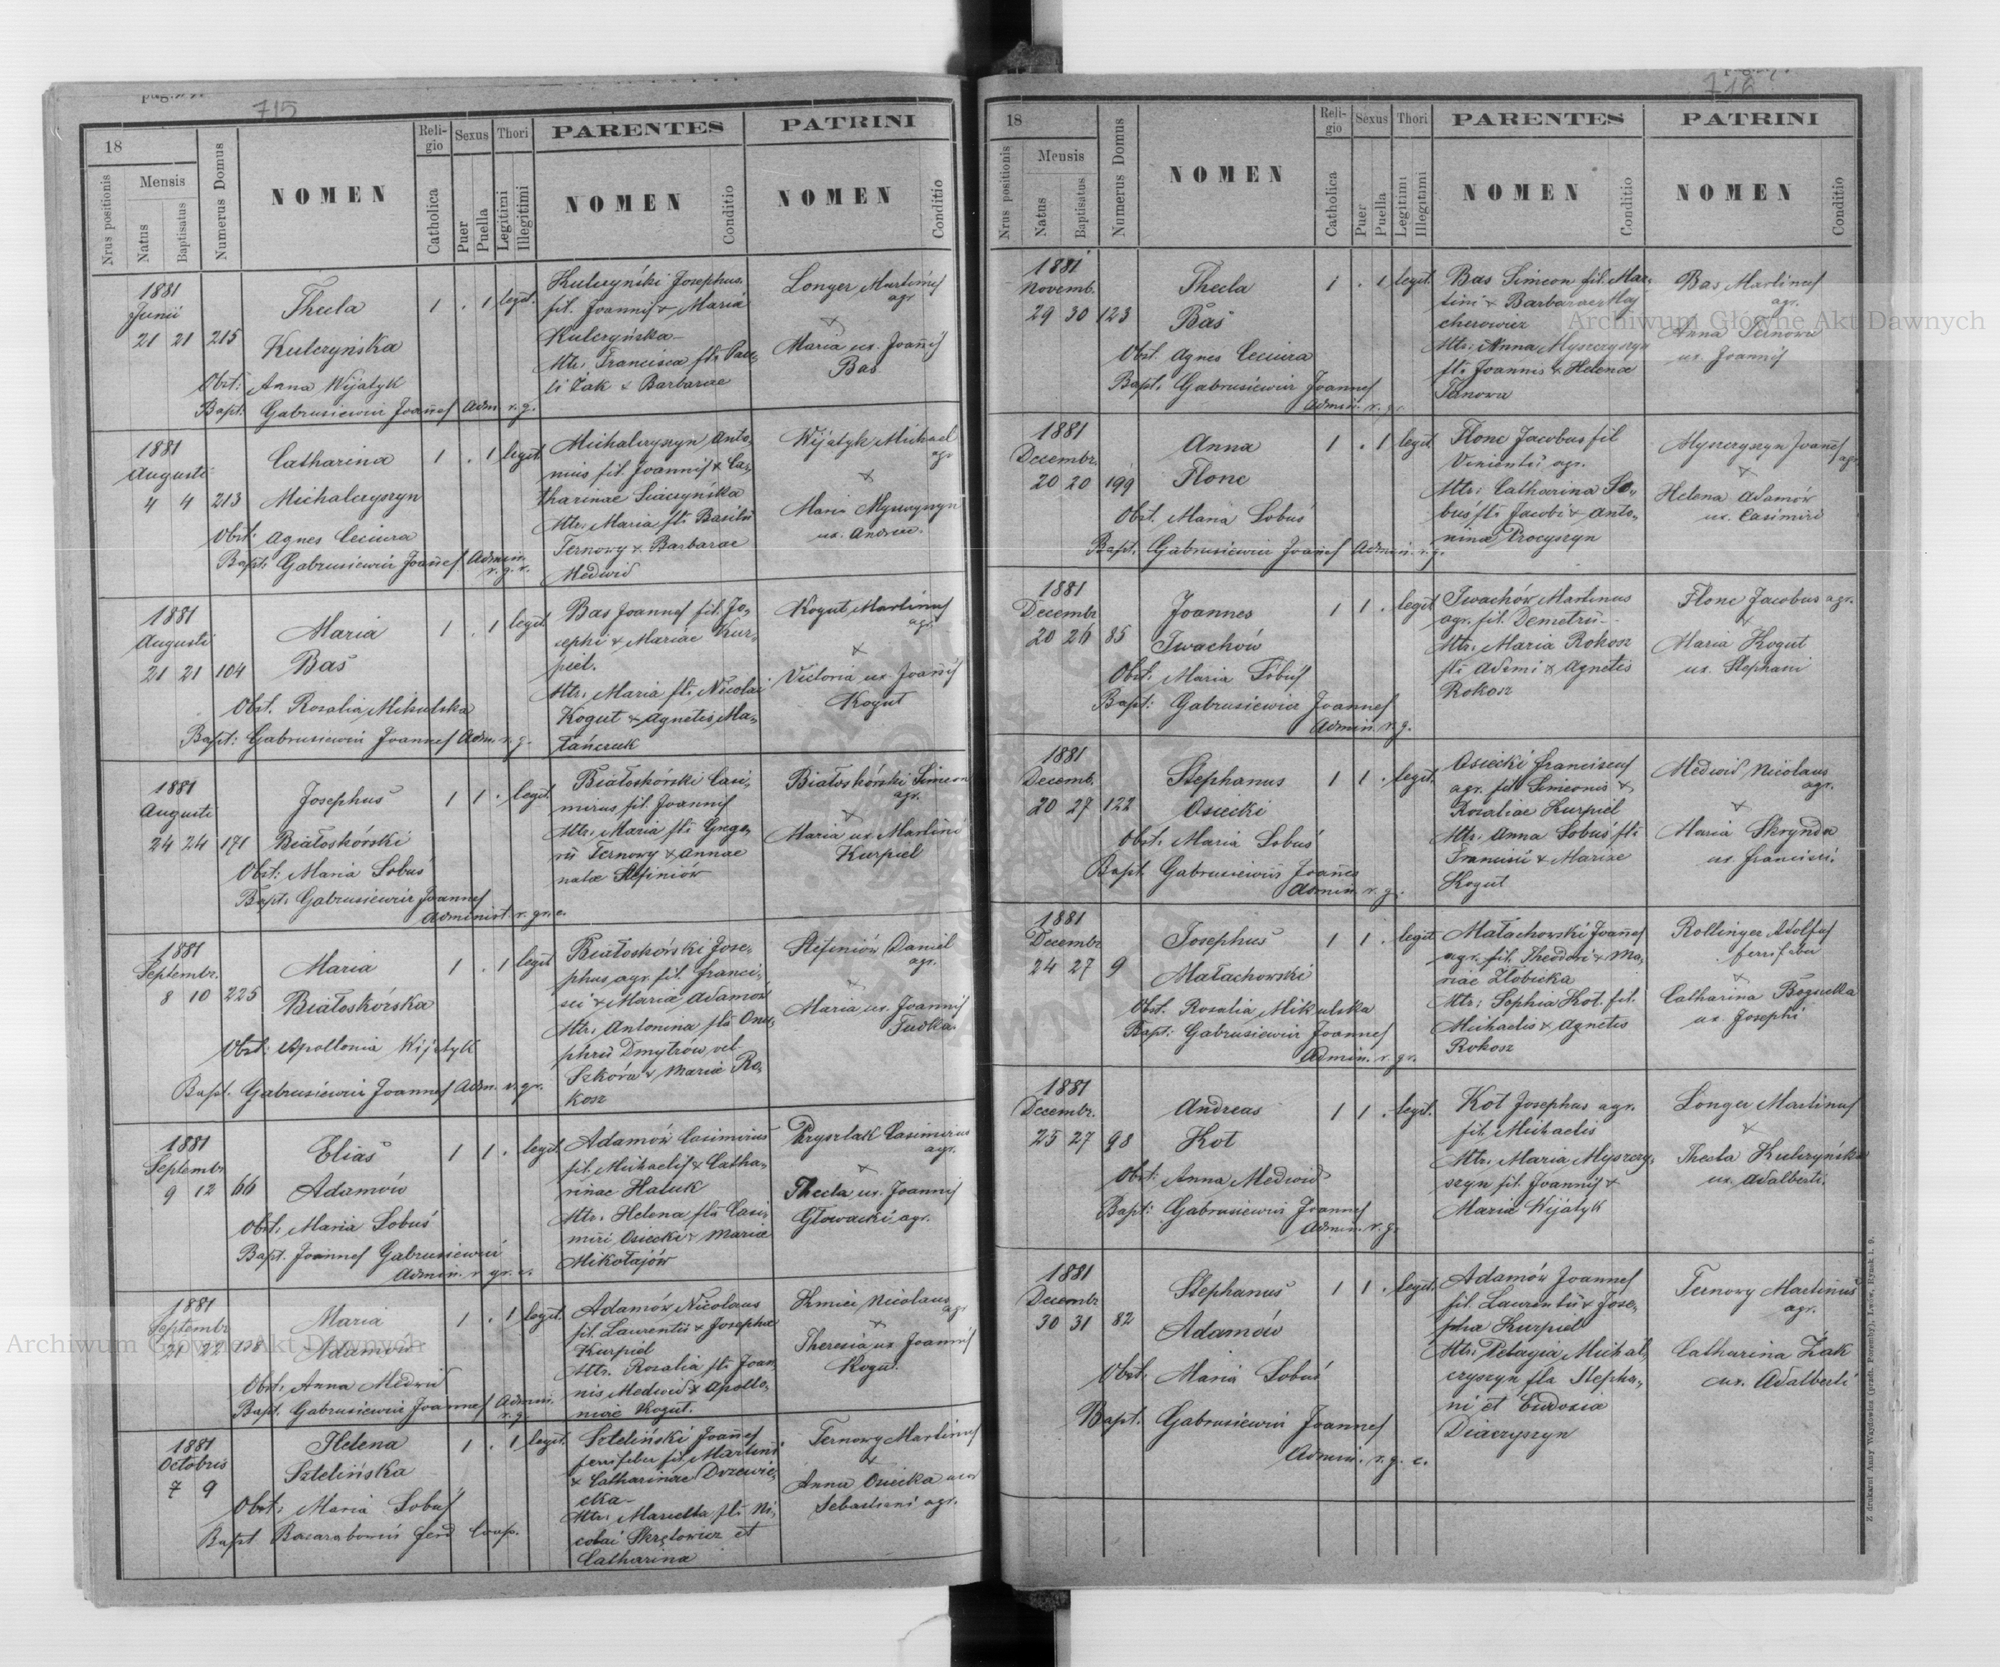 715
18
Nrus positionis
Mensis
Natus
Baptisatus
Numerus Domus
NOMEN
Religio
Catholica
Sexus
Puer
Puella
Thori
Legitimi
Illegitimi
PARENTES
NOMEN
Conditio
PATRINI
NOMEN
Conditio
1881
Junii
21 21 215
Thecla
Kulczyńska
Obst: Anna Wijatyk
Bapt: Gabrusiewicz Joannes Adm. r. g.
1 . 1 legit.
Kulczyński Josephus
fil. Joannis & Maria
Kulczyńska
Mtr. Francisca flia Pau-
li Żak & Barbarae
Longer Martinus
agr.
x
Maria ux. Joannis
Bas
1881
Augusti
4 4 213
Catharina
Michalczyszyn
Obst. Agnes Ceciura
Bapt: Gabrusiewicz Joannes Admin.
r. g. c.
1 . 1 legit.
Michalczyszyn Anto-
nius fil. Joannis & Ca-
tharinae
Mtr. Maria flia Basilii
Ternowy & Barbarae
Medwid
Wijatyk Michael
agr
x
Maria Myszczyszyn
ux. Andreae
1881
Augusti
21 21 104
Maria
Bas
Obst. Rosalia Mikulska
Bapt: Gabrusiewicz Joannes Adm. r. g.
1 . 1 legit
Bas Joannes fil. Jo-
sephi & Mariae Kur-
piel.
Mtr. Maria flia Nicolai
Kogut & Agnetis Ma-
Kogut Martinus
agr.
x
Victoria ux Joannis
Kogut
1881
Augusti
24 24 171
Josephus
Białoskórski
Obst: Maria Sobuś
Bapt: Gabrusiewicz Joannes
Administ r. gr. c.
1 1 . legit.
Białoskórski Casi-
mirus fil. Joannis
Mtr. Maria flia Grego-
rii Ternowy & Annae
natae Stefiniów
Białoskórski Simeon
agr.
x
Maria ux. Martini
Kurpiel
1881
Septembr.
8 10 225
Maria
Białoskórska
Obst: Apollonia Wijatyk
Bapt. Gabrusiewicz Joannes Adm. r. gr.
1 . 1 legit
Białoskórski Jose-
phus agr. fil. Franci-
sci & Maria Adamów
Mtr. Antonina flia Onu-
phrii Dmytrów vel
Szkóra & Maria Ro-
kosz
Stefiniów Daniel
agr.
Maria ux. Joannis
Tudka
1881
Septembr
9 12 66
Elias
Adamów
Obst: Maria Sobuś
Bapt. Joannes Gabrusiewicz
Admin. r gr. c.
1 1 . legit.
Adamów Casimirus
fil. Michaelis & Catha-
rinae Haluk
Mtr. Helena flia Casi-
miri Osiecki & Mariae
Mikołajów
Pryszlak Casimirus
agr.
x
Thecla ux. Joannis
Głowacki agr.
1881
Septembr
21 22 128
Maria
Adamów
Obst. Anna Medwid
Bapt. Gabrusiewicz Joannes Admin.
r. g.
1 . 1 legit.
Adamów Nicolaus
fil. Laurentii & Josepha
Kurpiel
Mtr. Rosalia flia Joan-
nis Medwid & Apollo-
niae Kogut.
Kmieć Nicolaus
agr
x
Theresia ux Joannis
Kogut
1881
Octobris
7 9
Helena
Sztelińska
Obst: Maria Sobuś
Bapt Ferd Coop.
1 . 1 legit.
Szteliński Joannes
ferrifiber fil. Martini
& Catharinae Drzewie-
cka
Mtr. flia Ni-
colai et
Catharina
Ternowy Martinus
x
Anna Osiecka uxor
Sebastiani agr.
716
18
Nrus positionis
Mensis
Natus
Baptisatus
Numerus Domus
NOMEN
Religio
Catholica
Sexus
Puer
Puella
Thori
Legitimi
Illegitimi
PARENTES
NOMEN
Conditio
PATRINI
NOMEN
Conditio
1881
Novemb.
29 30 123
Thecla
Bas
Obst. Agnes Ceciura
Bapt: Gabrusiewicz Joannes
Admin. r. gr.
1 . 1 legit.
Bas Simeon fil. Mar-
tini & Barbarae Maj
cherowicz
Mtr: Anna Myszczyszyn
flia Joannis & Helenae
Ternowa
Bas Martinus
agr.
Anna Ternowa
ux. Joannis
1881
Decembr.
20 20 199
Anna
Flonc
Obst. Maria Sobuś
Bapt. Gabrusiewicz Joannes Admin. r. g.
1 . 1 legit
Flonc Jacobus fil
Vincentii agr.
Mtr: Catharina So-
buś flia Jacobi & Anto-
nina Procyszyn
Myszczyszyn Joannes
agr
x
Helena Adamów
ux. Casimiri
1881
Decembr
20 26 85
Joannes
Iwachów
Obst. Maria Sobuś
Bapt: Gabrusiewicz Joannes
Admin. r. g.
1 1 . legit
Iwachów Martinus
agr. fil. Demetrii
Mtr. Maria Rokosz
flia Adami & Agnetis
Rokosz
Flonc Jacobus agr.
x
Maria Kogut
ux. Stephani
1881
Decemb.
20 27 122
Stephanus
Osiecki
Obst. Maria Sobuś
Bapt. Gabrusiewicz Joannes
Admin. r. g.
1 1 . legit.
Osiecki Franciscus
agr. fil Simeonis &
Rosaliae Kurpiel
Mtr. Anna Sobuś flia
Francisci & Mariae
Kogut
Medwid Nicolaus
agr.
x
Maria Skrynda
ux. Francisci.
1881
Decembr
24 27 9
Josephus
Małachowski
Obst. Rosalia Mikulska
Bapt: Gabrusiewicz Joannes
Admin. r. gr.
1 1 . legit
Małachowski Joannes
agr. fil. Theodori & Ma-
riae Złobicka
Mtr: Sophia Kot. fil.
Michaelis & Agnetis
Rokosz
Rollinger Adolfus
ferrifiber
x
Catharina Bogucka
ux. Josephi
1881
Decembr.
25 27 98
Andreas
Kot
Obst: Anna Medwid
Bapt: Gabrusiewicz Joannes
Admin. r. g.
1 1 . legit.
Kot Josephus agr.
fil. Michaelis
Mtr. Maria Myszczy-
szyn fil. Joannis &
Maria Wijatyk
Longer Martinus
x
Thecla Kulczyńska
ux. Adalberti.
1881
Decembr
30 31 82
Stephanus
Adamów
Obst. Maria Sobuś
Bapt. Gabrusiewicz Joannes
Admin. r. g. c.
1 1 . legit.
Adamów Joannes
fil. Laurentii & Jose-
pha Kurpiel
Mtr. Pelagia Michal-
czyszyn flia Stepha-
ni et Eudoxia
Diaczyszyn
Ternowy Martinus
agr.
Catharina Żak
ux. Adalberti
Z drukarni Anny Wajdowicz (przedt. Poremby), Lwów, Rynek l. 9.
Archiwum Główne Akt Dawnych
Archiwum Główne Akt Dawnych